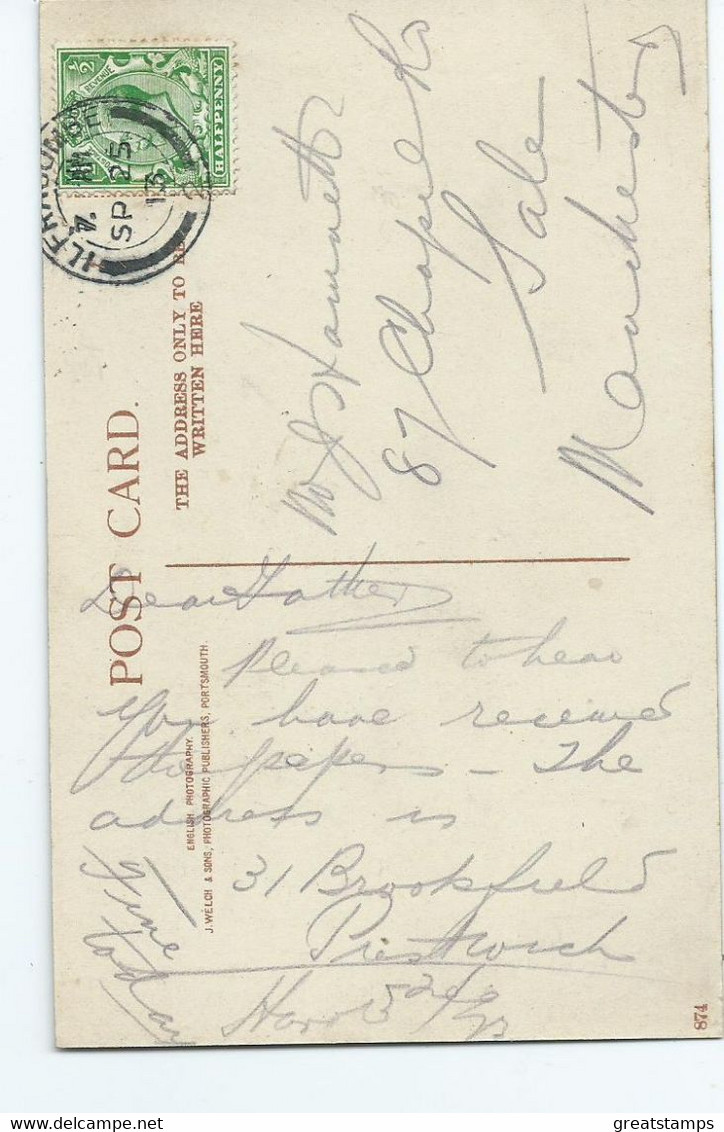 ½
REVENUE
HALFPENNY
ILFRACOMBE
7.
SP 25
13
POST CARD.
THE ADDRESS ONLY TO BE
WRITTEN HERE
87 Chapel Rd
Sale
Manchester
Dear Father
Pleased to hear
you have received
the papers – The
address is
31 Brookfield
Prestwich
Fine
today
ENGLISH PHOTOGRAPHY.
J. WELCH & SONS, PHOTOGRAPHIC PUBLISHERS, PORTSMOUTH.
874
https://www.delcampe.net
greatstamps